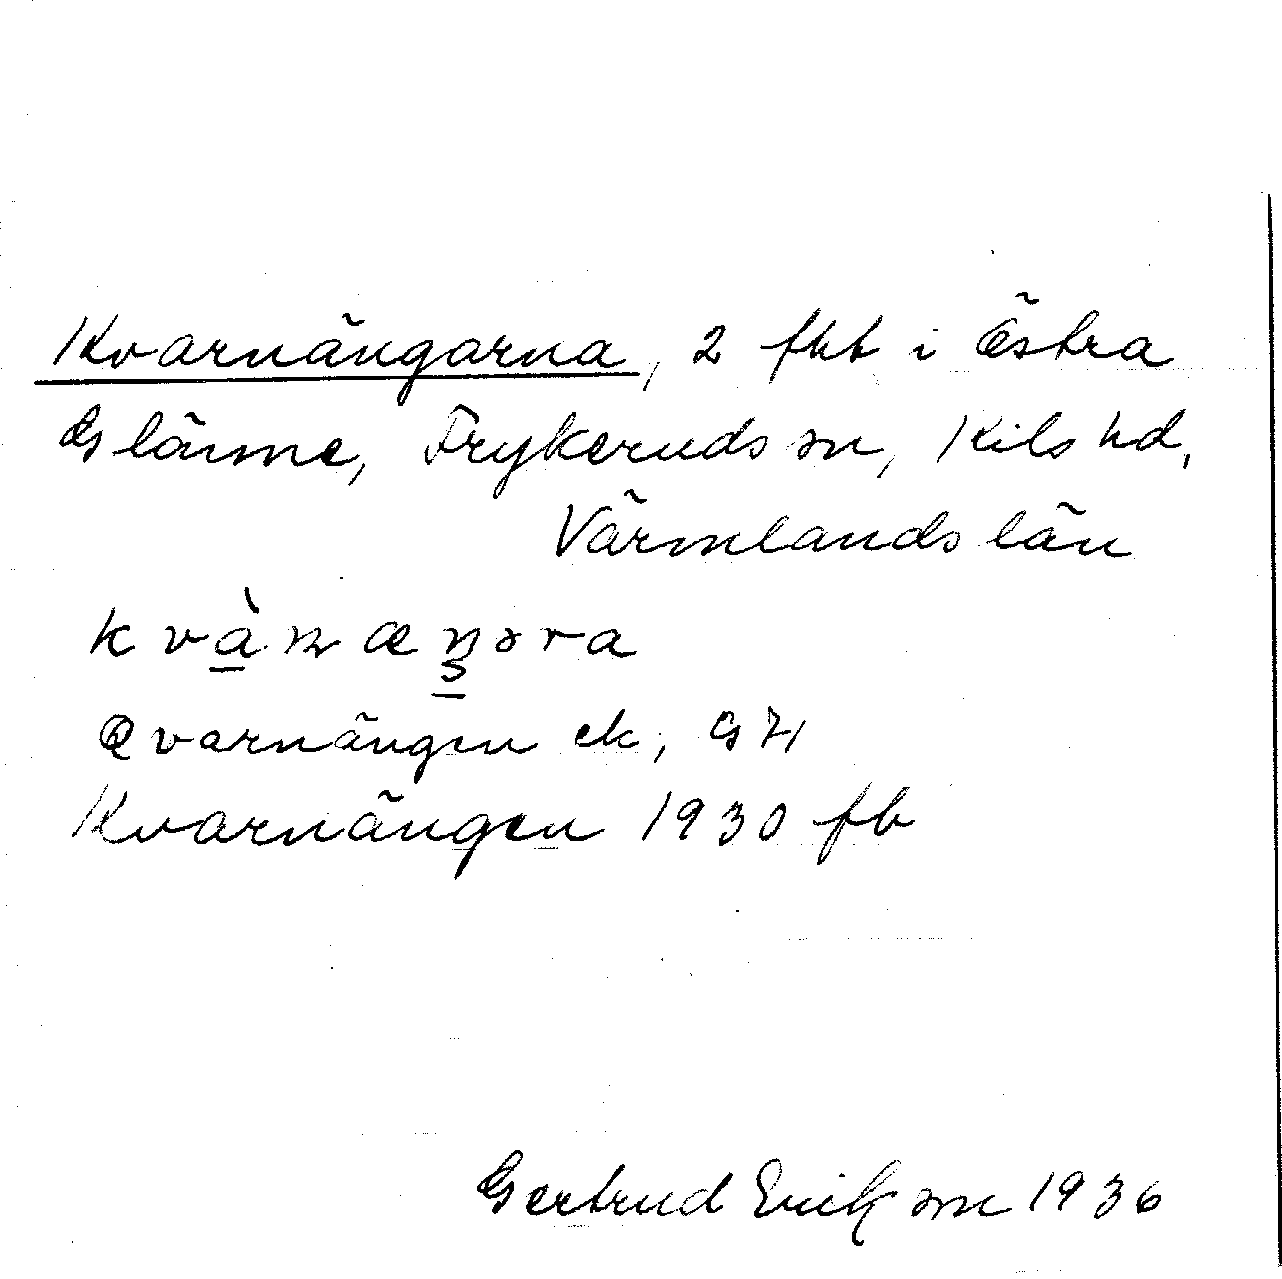 Kvarnängarna, 2 fht i Östra
Glänne, Frykeruds sn, Kils hd,
Värmlands län
kvànæŋəra
Qvarnängen ek, GH
Kvarnängen 1930 fb
Gertrud Erikson 1936